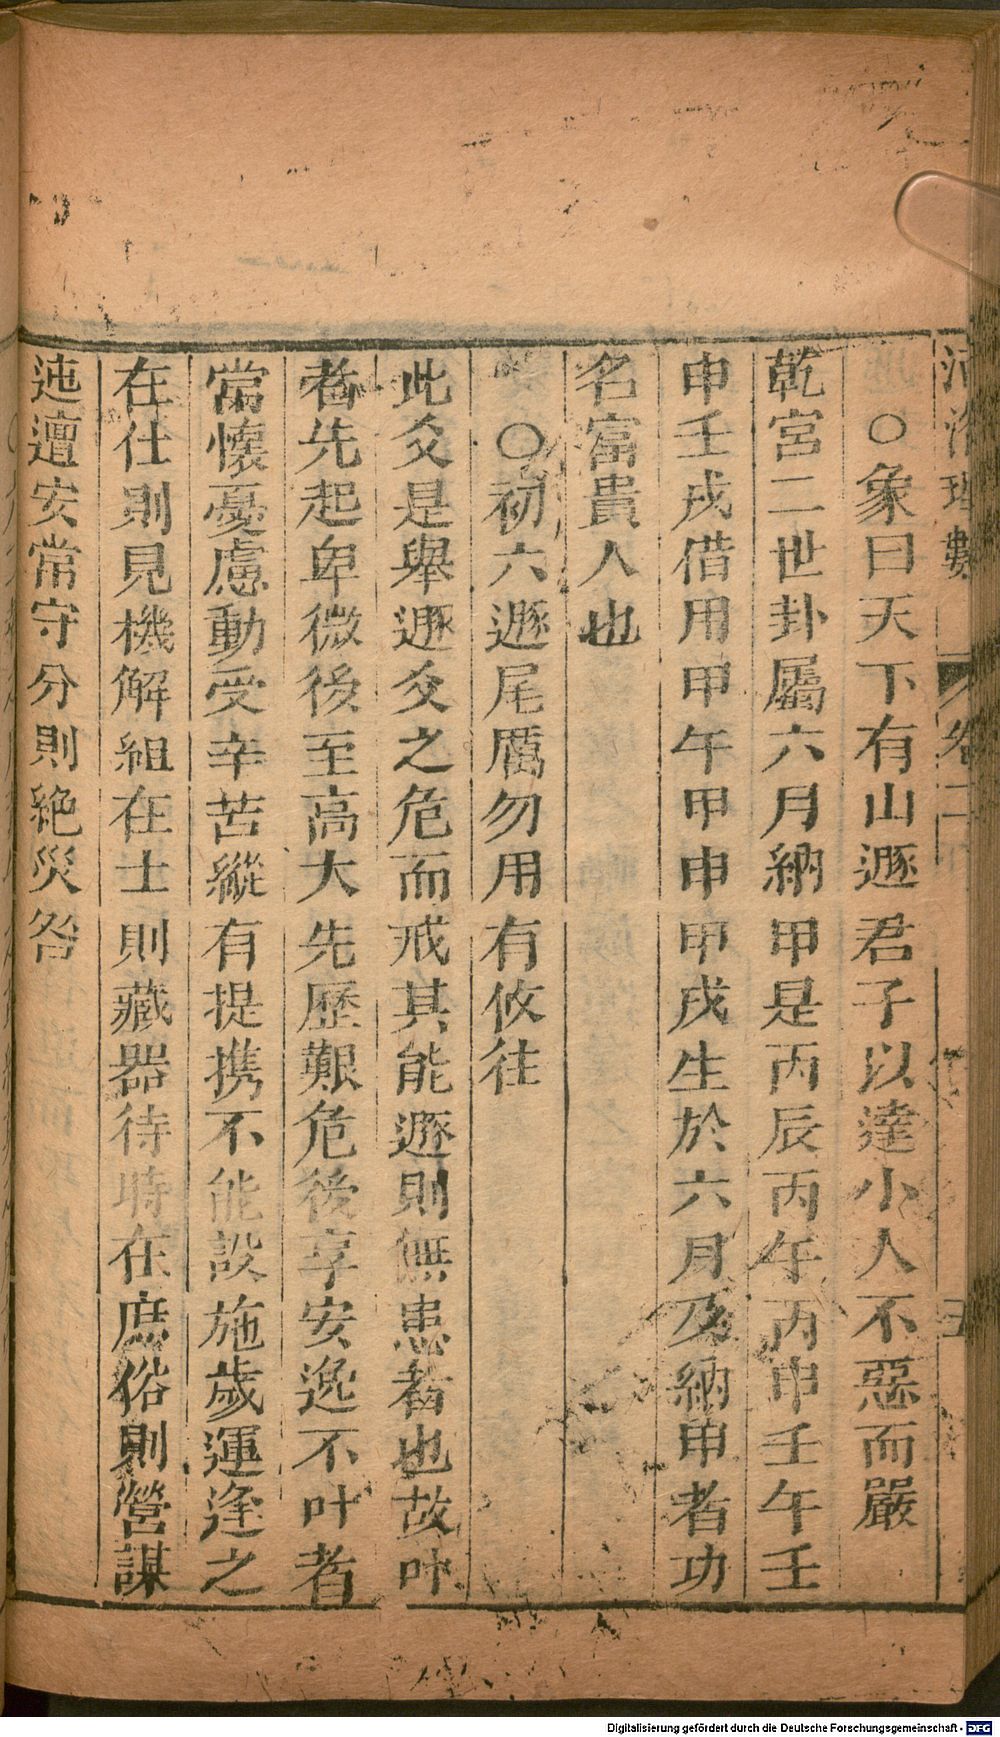 河洛理數
卷二
五
○象曰天下有山遯君子以達小人不惡而嚴
乾宮二世卦屬六月納甲是丙辰丙午丙申壬午壬
申壬戌借用甲午甲申甲戌生於六月及納甲者功
名富貴人也
○初六遯尾厲勿用有攸往
此爻是舉遯爻之危而戒其能遯則無患者也故叶
者先起卑微後至高大先歷艱危後享安逸不叶者
當懷憂慮動受辛苦縱有提携不能設施歲運逢之
在仕則見機解組在士則藏器待時在庶俗則營謀
迍邅安常守分則絶災咎
Digitalisierung gefördert durch die Deutsche Forschungsgemeinschaft - DFG